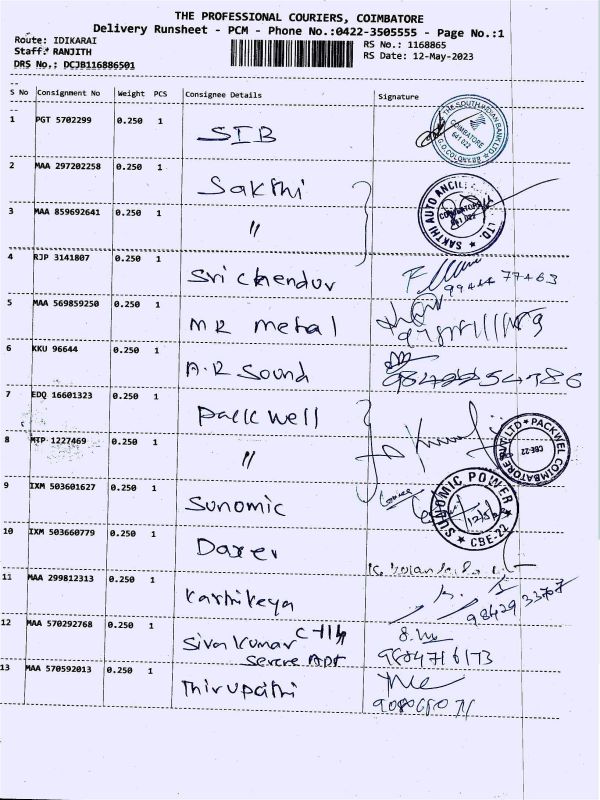 THE PROFESSIONAL COURIERS, COIMBATORE
Delivery Runsheet - PCM - Phone No.:0422-3505555 - Page No.:1
Route: IDIKARAI
RS No.: 1168865
Staff: RANJITH
RS Date: 12-May-2023
DRS No.: DCJB116886501
S No Consignment No Weight PCS Consignee Details Signature
1 PGT 5702299 0.250 1 SIB
THE SOUTH INDIAN BANK LTD COIMBATORE 641 022
2 MAA 297202258 0.250 1 Sakthi
3 MAA 859692641 0.250 1 "
SAKTHI AUTO ANCILL LTD.
4 RJP 3141807 0.250 1 Sri Chendur
5 MAA 569859250 0.250 1 MR metal
6 KKU 96644 0.250 1 A.R Sound
7 EDQ 16601323 0.250 1 Pack well
8 MTP 1227469 0.250 1 "
PACKWEL COIMBATORE PVT LTD CBE-22
9 IXM 503601627 0.250 1 Sunomic
SUNOMIC POWER CBE-22
10 IXM 503660779 0.250 1
11 MAA 299812313 0.250 1 Karthikeya
98429 33707
12 MAA 570292768 0.250 1 Siva Kumar
13 MAA 570592013 0.250 1 Thirupathi